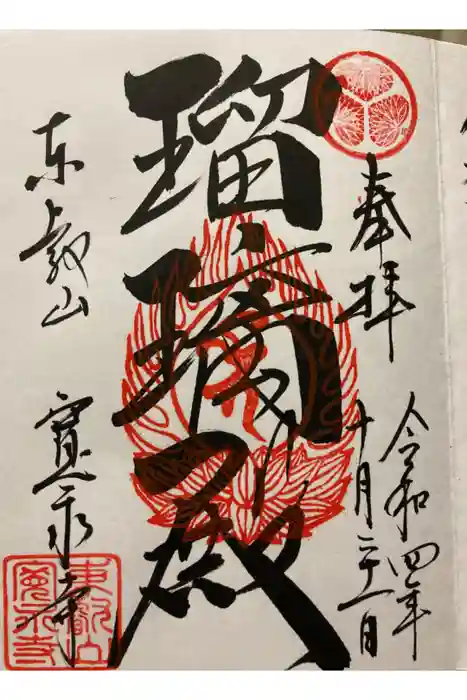 奉拝
令和四年
十月二十一日
瑠璃殿
東叡山
寛永寺
東叡山
寛永寺